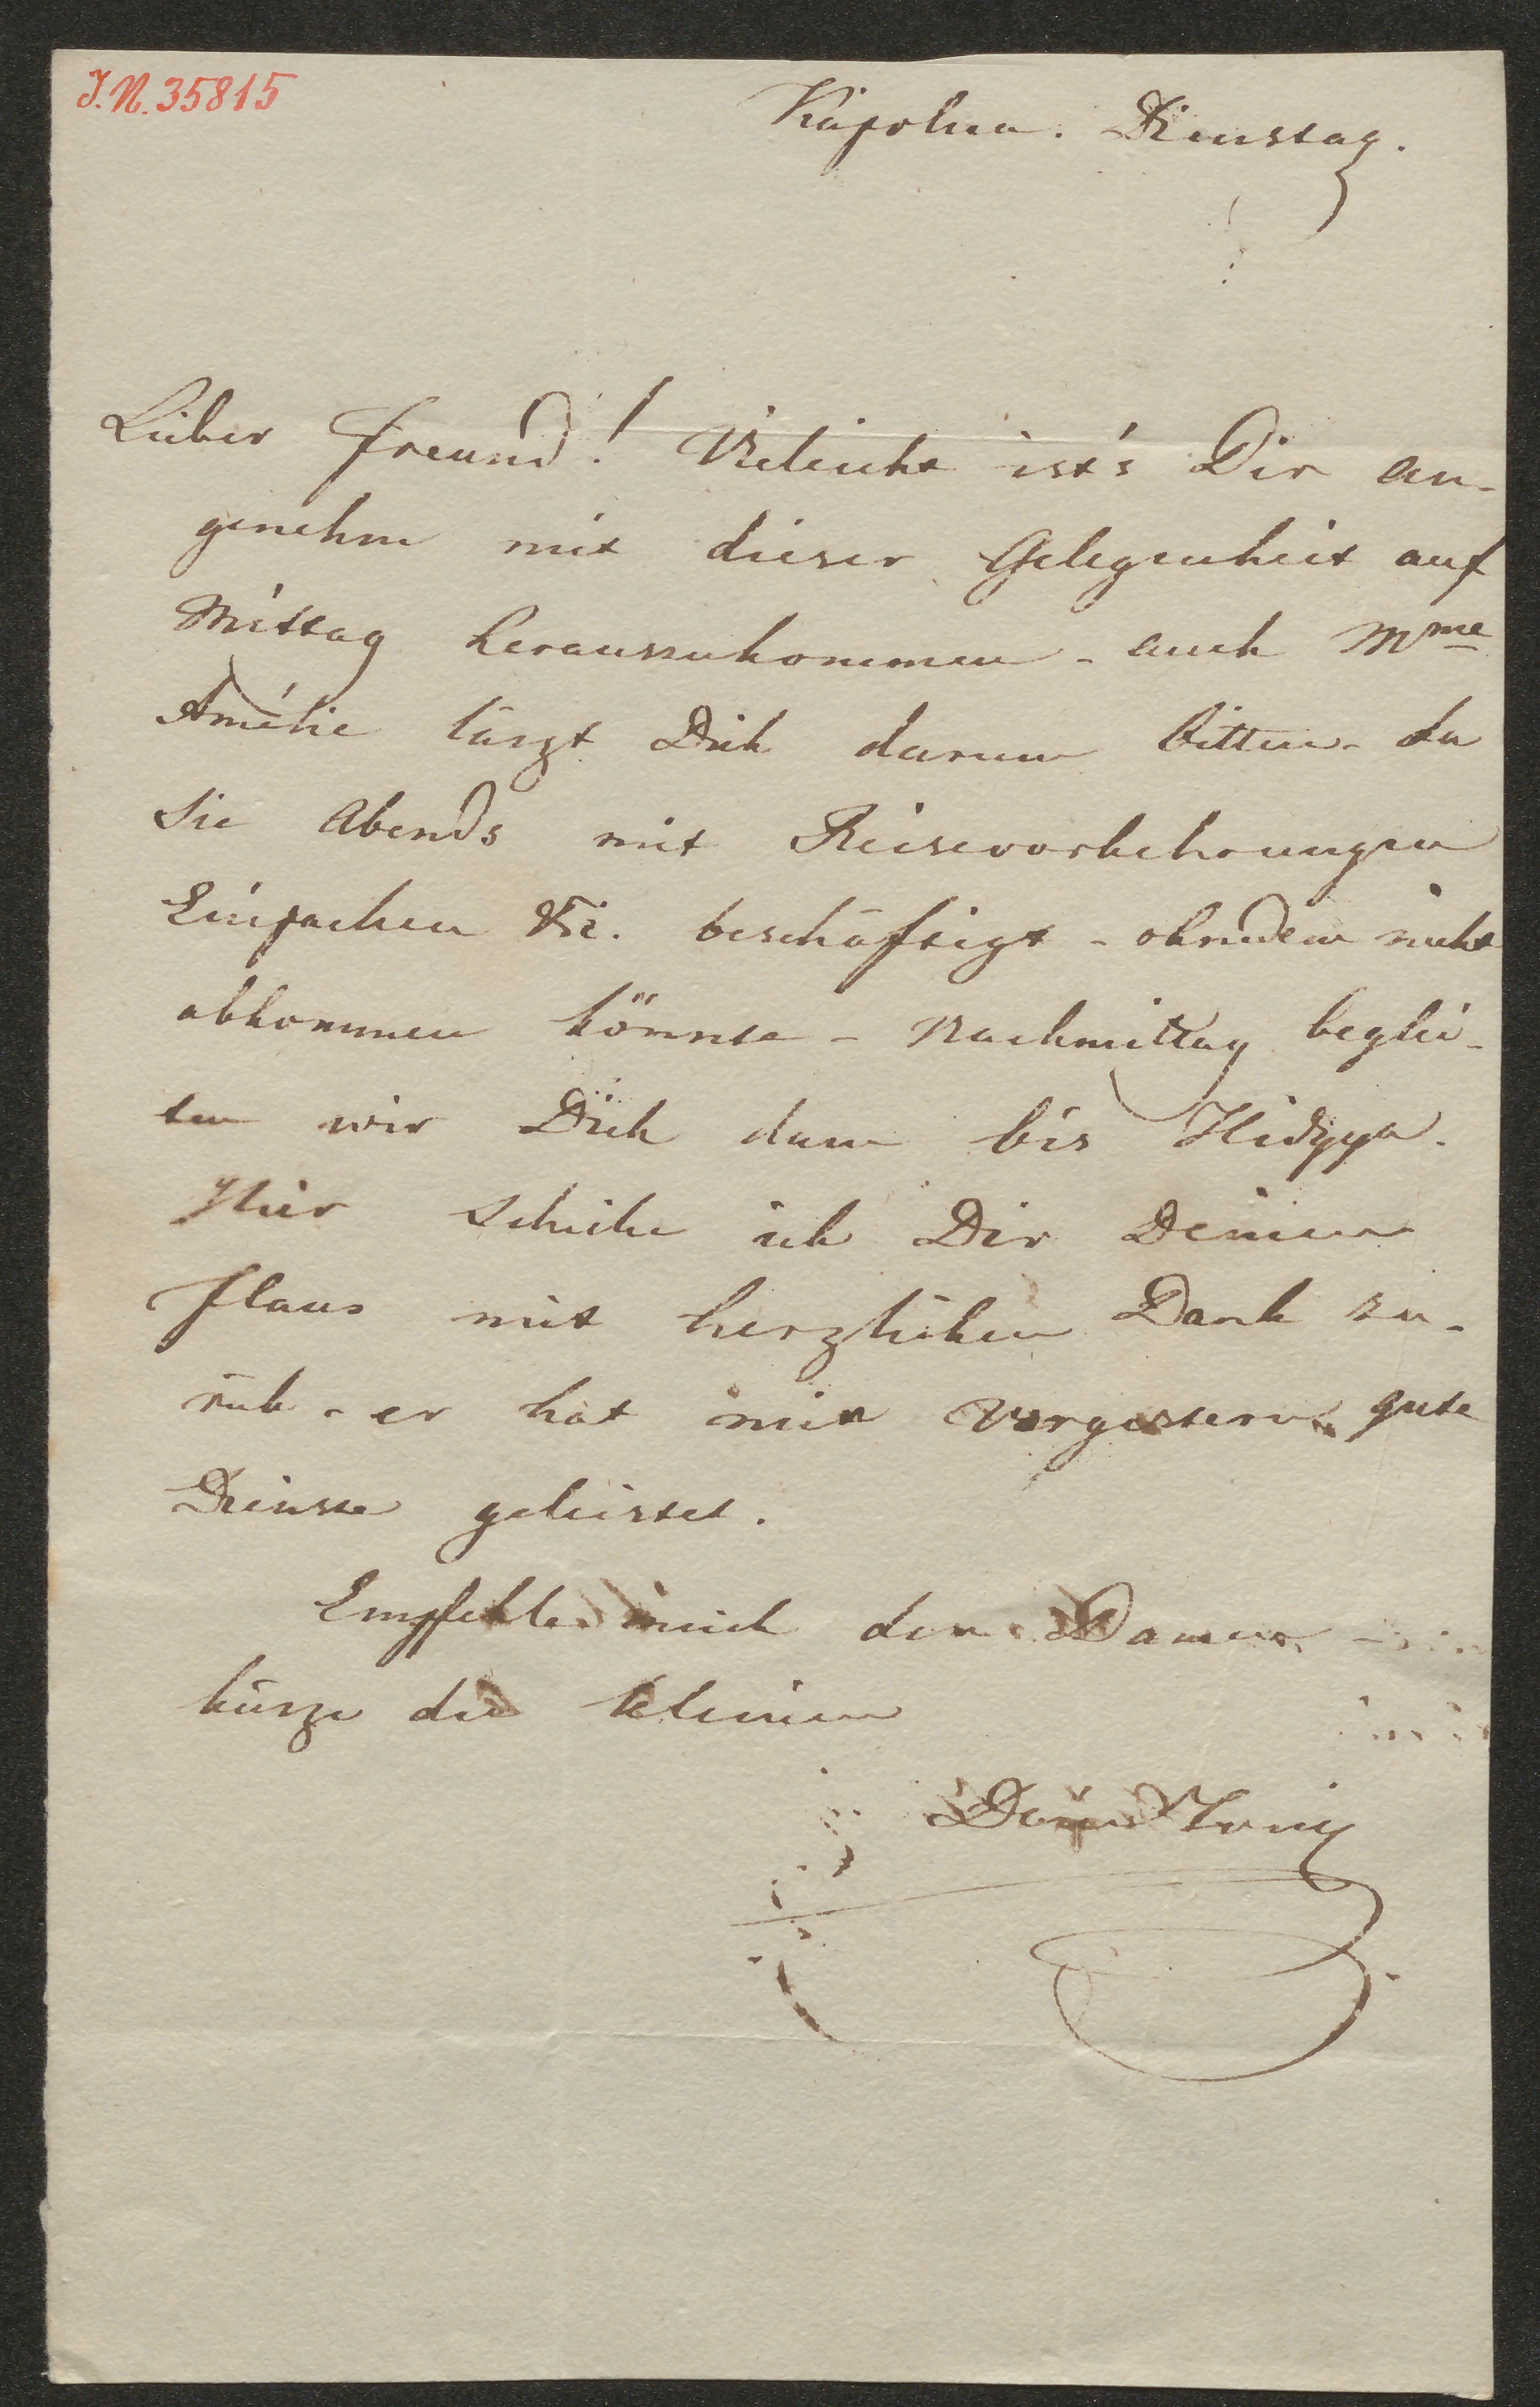 I.N. 35815
Kápolna. Dienstag.
Lieber Freund! Vieleicht ist's Dir an-
genehm mit dieser Gelegenheit auf
Mittag herauszukommen - auch Mme
Amélie läszt Dich darum bitten - da
Sie Abends mit Reisevorkehrungen
Einpacken &c. beschäftigt - ohnedem nicht
abkommen könnte - Nachmittag beglei-
ten wir Dich dann bis
Hier schicke ich Dir Deinen
Flaus mit herzlichen Dank zu-
rück - er hat mir vorgestern gute
Dienste geleistet.
Empfehle mich den Damen
küsze die kleinen
Dein